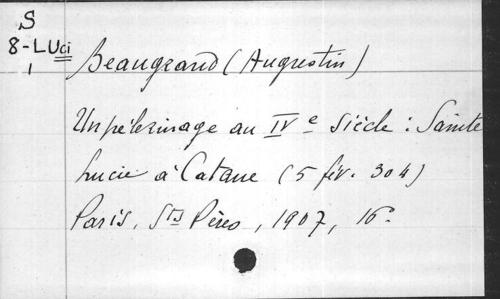 S
8-LUci
1
Beaugrand (Augustin)
Un pèlerinage au IVe siècle : Sainte
Lucie à Catane (5 fév. 304)
Paris, Sts Pères, 1907, 16°